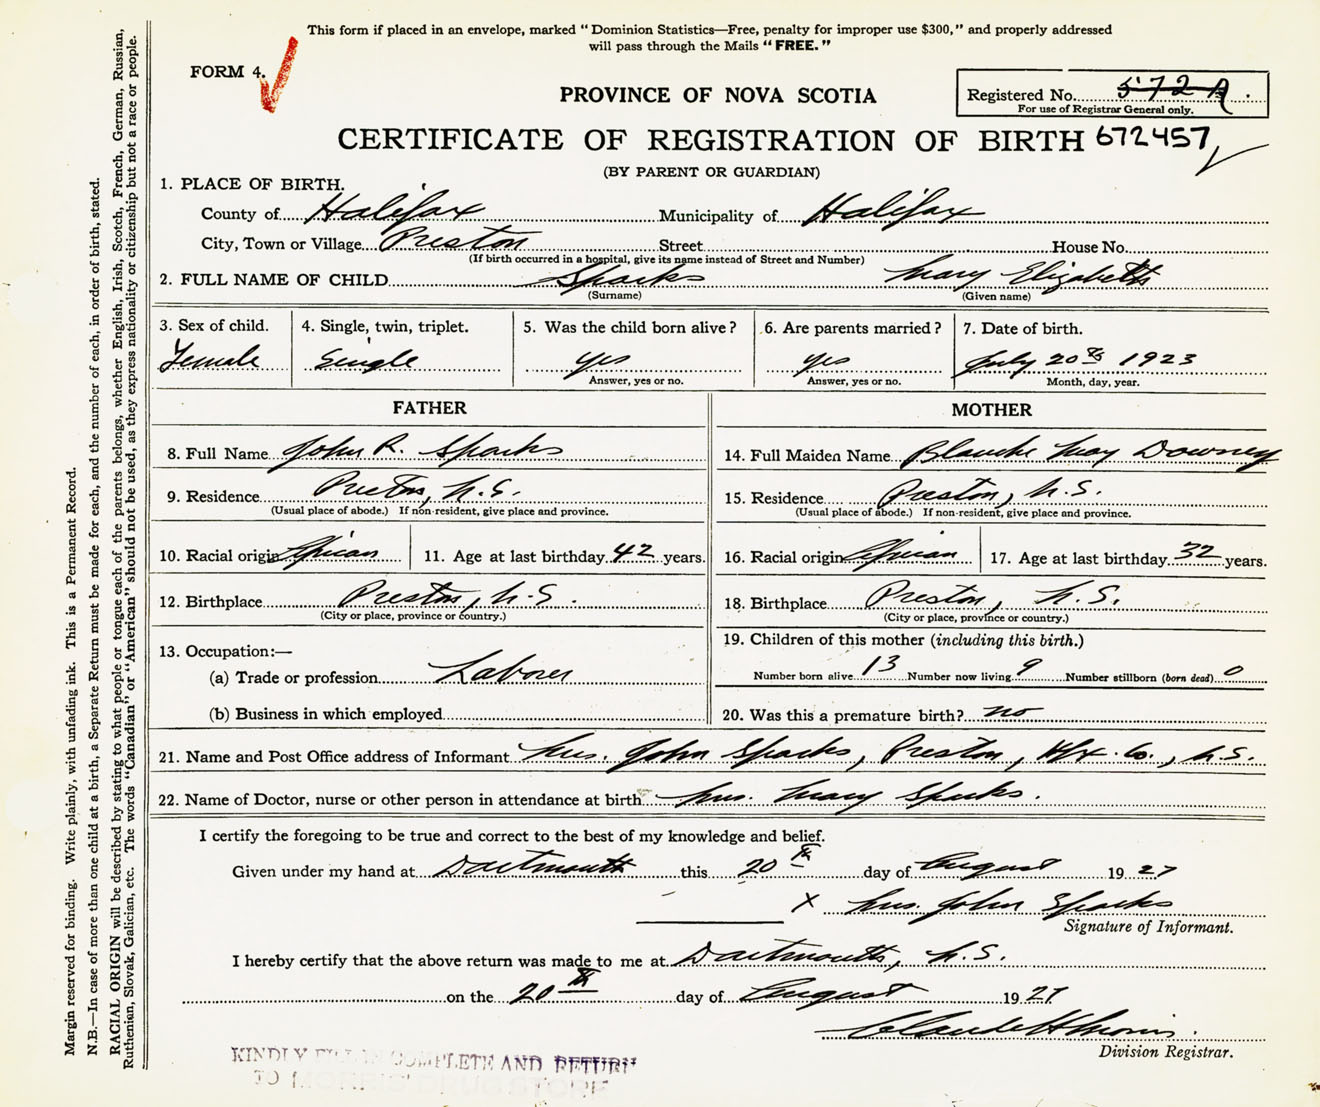 This form if placed in an envelope, marked "Dominion Statistics—Free, penalty for improper use $300," and properly addressed
will pass through the Mails "FREE."
FORM 4.
Registered No. 572 A
For use of Registrar General only.
PROVINCE OF NOVA SCOTIA
CERTIFICATE OF REGISTRATION OF BIRTH 672457
(BY PARENT OR GUARDIAN)
1. PLACE OF BIRTH.
County of Halifax Municipality of Halifax
City, Town or Village Preston Street House No.
(If birth occurred in a hospital, give its name instead of Street and Number)
2. FULL NAME OF CHILD Sparks Mary Elizabeth
(Surname) (Given name)
3. Sex of child. 4. Single, twin, triplet. 5. Was the child born alive? 6. Are parents married? 7. Date of birth.
Female Single yes yes July 20th 1923
Answer, yes or no. Answer, yes or no. Month, day, year.
FATHER MOTHER
8. Full Name John R. Sparks 14. Full Maiden Name Blanche May Downey
9. Residence Preston, N.S. 15. Residence Preston, N.S.
(Usual place of abode.) If non-resident, give place and province. (Usual place of abode.) If non-resident, give place and province.
10. Racial origin African 11. Age at last birthday 42 years. 16. Racial origin African 17. Age at last birthday 32 years.
12. Birthplace Preston, N.S. 18. Birthplace Preston, N.S.
(City or place, province or country.) (City or place, province or country.)
13. Occupation:— 19. Children of this mother (including this birth.)
(a) Trade or profession Laborer Number born alive 13 Number now living 9 Number stillborn (born dead) 0
(b) Business in which employed 20. Was this a premature birth? no
21. Name and Post Office address of Informant Mrs. John Sparks, Preston, Hfx. Co., N.S.
22. Name of Doctor, nurse or other person in attendance at birth Mrs. Mary Sparks.
I certify the foregoing to be true and correct to the best of my knowledge and belief.
Given under my hand at Dartmouth this 20th day of August 1927
X Mrs. John Sparks
Signature of Informant.
I hereby certify that the above return was made to me at Dartmouth, N.S.
on the 20th day of August 1927
Claude H Morris.
Division Registrar.
KINDLY FILL IN COMPLETE AND RETURN
TO
Margin reserved for binding. Write plainly, with unfading ink. This is a Permanent Record.
N.B.—In case of more than one child at a birth, a Separate Return must be made for each, and the number of each, in order of birth, stated.
RACIAL ORIGIN will be described by stating to what people or tongue each of the parents belongs, whether English, Irish, Scotch, French, German, Russian,
Ruthenian, Slovak, Galician, etc. The words "Canadian" or "American" should not be used, as they express nationality or citizenship but not a race or people.